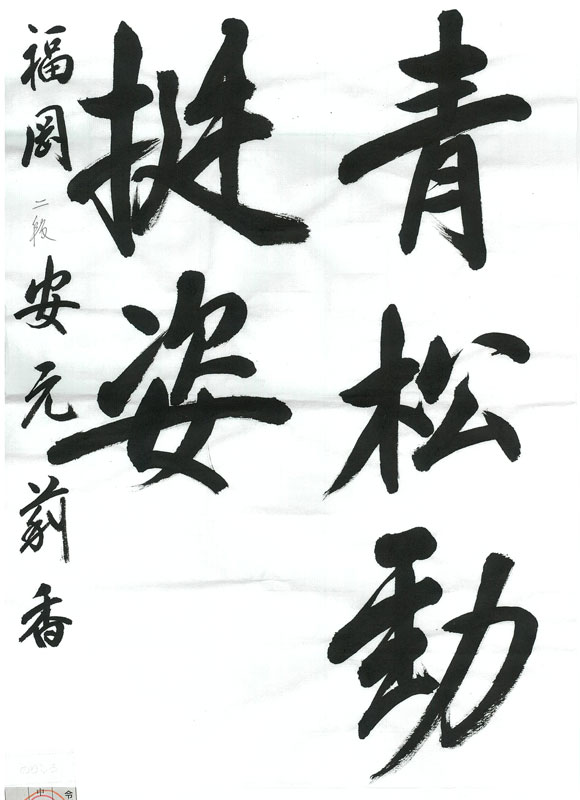 青松勁
挺姿
福岡 二段 安元莉香